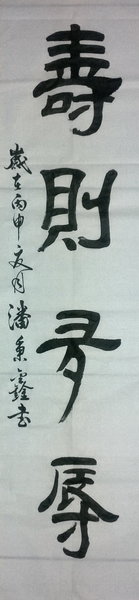 壽則多辱
歲在丙申夏月潘鑫书